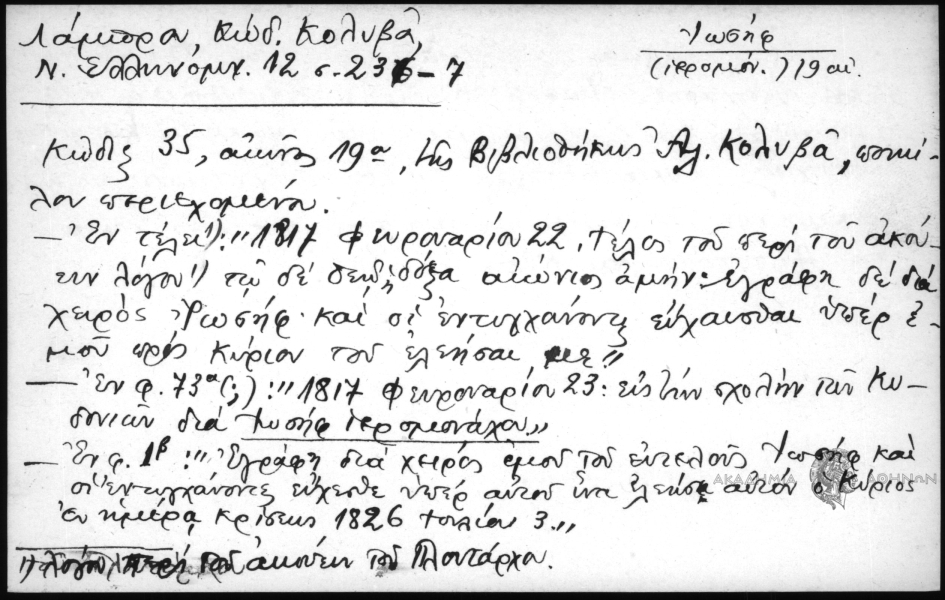 Λάμπρου, Κώδ. Κολυβᾶ,
Ν. Ἑλληνομν. 12 σ. 236-7
Ἰωσήφ
(ἱερομόν.) 19 αἰ.
Κώδιξ 35, αἰῶνος 19ου, τῆς Βιβλιοθήκης Ἀλ. Κολυβᾶ, ποικί-
λου περιεχομένου.
— Ἐν τέλει: " 1817 Φευρουαρίου 22. τέλος τοῦ περὶ τοῦ ἀκού-
ειν λόγου 1) τῷ δὲ θεῷ ἡ δόξα αἰώνιος ἀμήν: Ἐγράφη δὲ διὰ
χειρὸς Ἰωσήφ· καὶ οἱ ἐντυγχάνοντες εὔχεσθαι ὑπὲρ ἐ-
μοῦ πρὸς Κύριον τοῦ ἐλεῆσαί με"
— Ἐν φ. 73α (;) : " 1817 Φευρουαρίου 23: εἰς τὴν σχολὴν τῶν Κυ-
δονιῶν διὰ Ἰωσὴφ ἱερομονάχου"
— Ἐν φ. 1β : " Ἐγράφη διὰ χειρὸς ἐμοῦ τοῦ εὐτελοῦς Ἰωσὴφ καὶ
οἱ ἐντυγχάνοντες εὔχεσθε ὑπὲρ αὐτοῦ ἵνα ἐλεήσῃ αὐτὸν ὁ Κύριος
ἐν ἡμέρᾳ κρίσεως 1826 Ἰουλίου 3."
ΑΚΑΔΗΜΙΑ ΑΘΗΝΩΝ
1) περὶ τοῦ ἀκούειν τοῦ Πλουτάρχου.